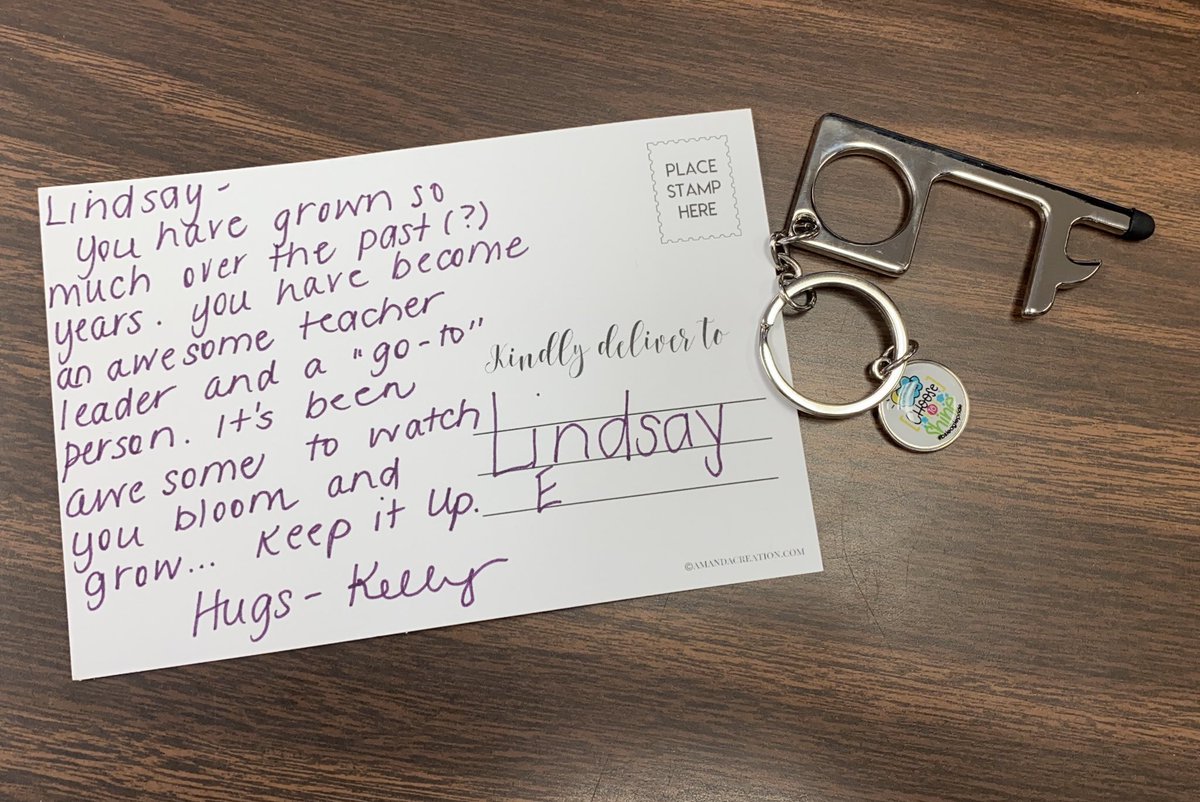 Lindsay-
you have grown so
much over the past (?)
years. you have become
an awesome teacher
leader and a "go-to"
person. It's been
awesome to watch
you bloom and
grow... Keep it up.
Hugs- Kelly
PLACE
STAMP
HERE
Kindly deliver to
Lindsay
E
©AMANDACREATION.COM
CHOOSE
to
Shine